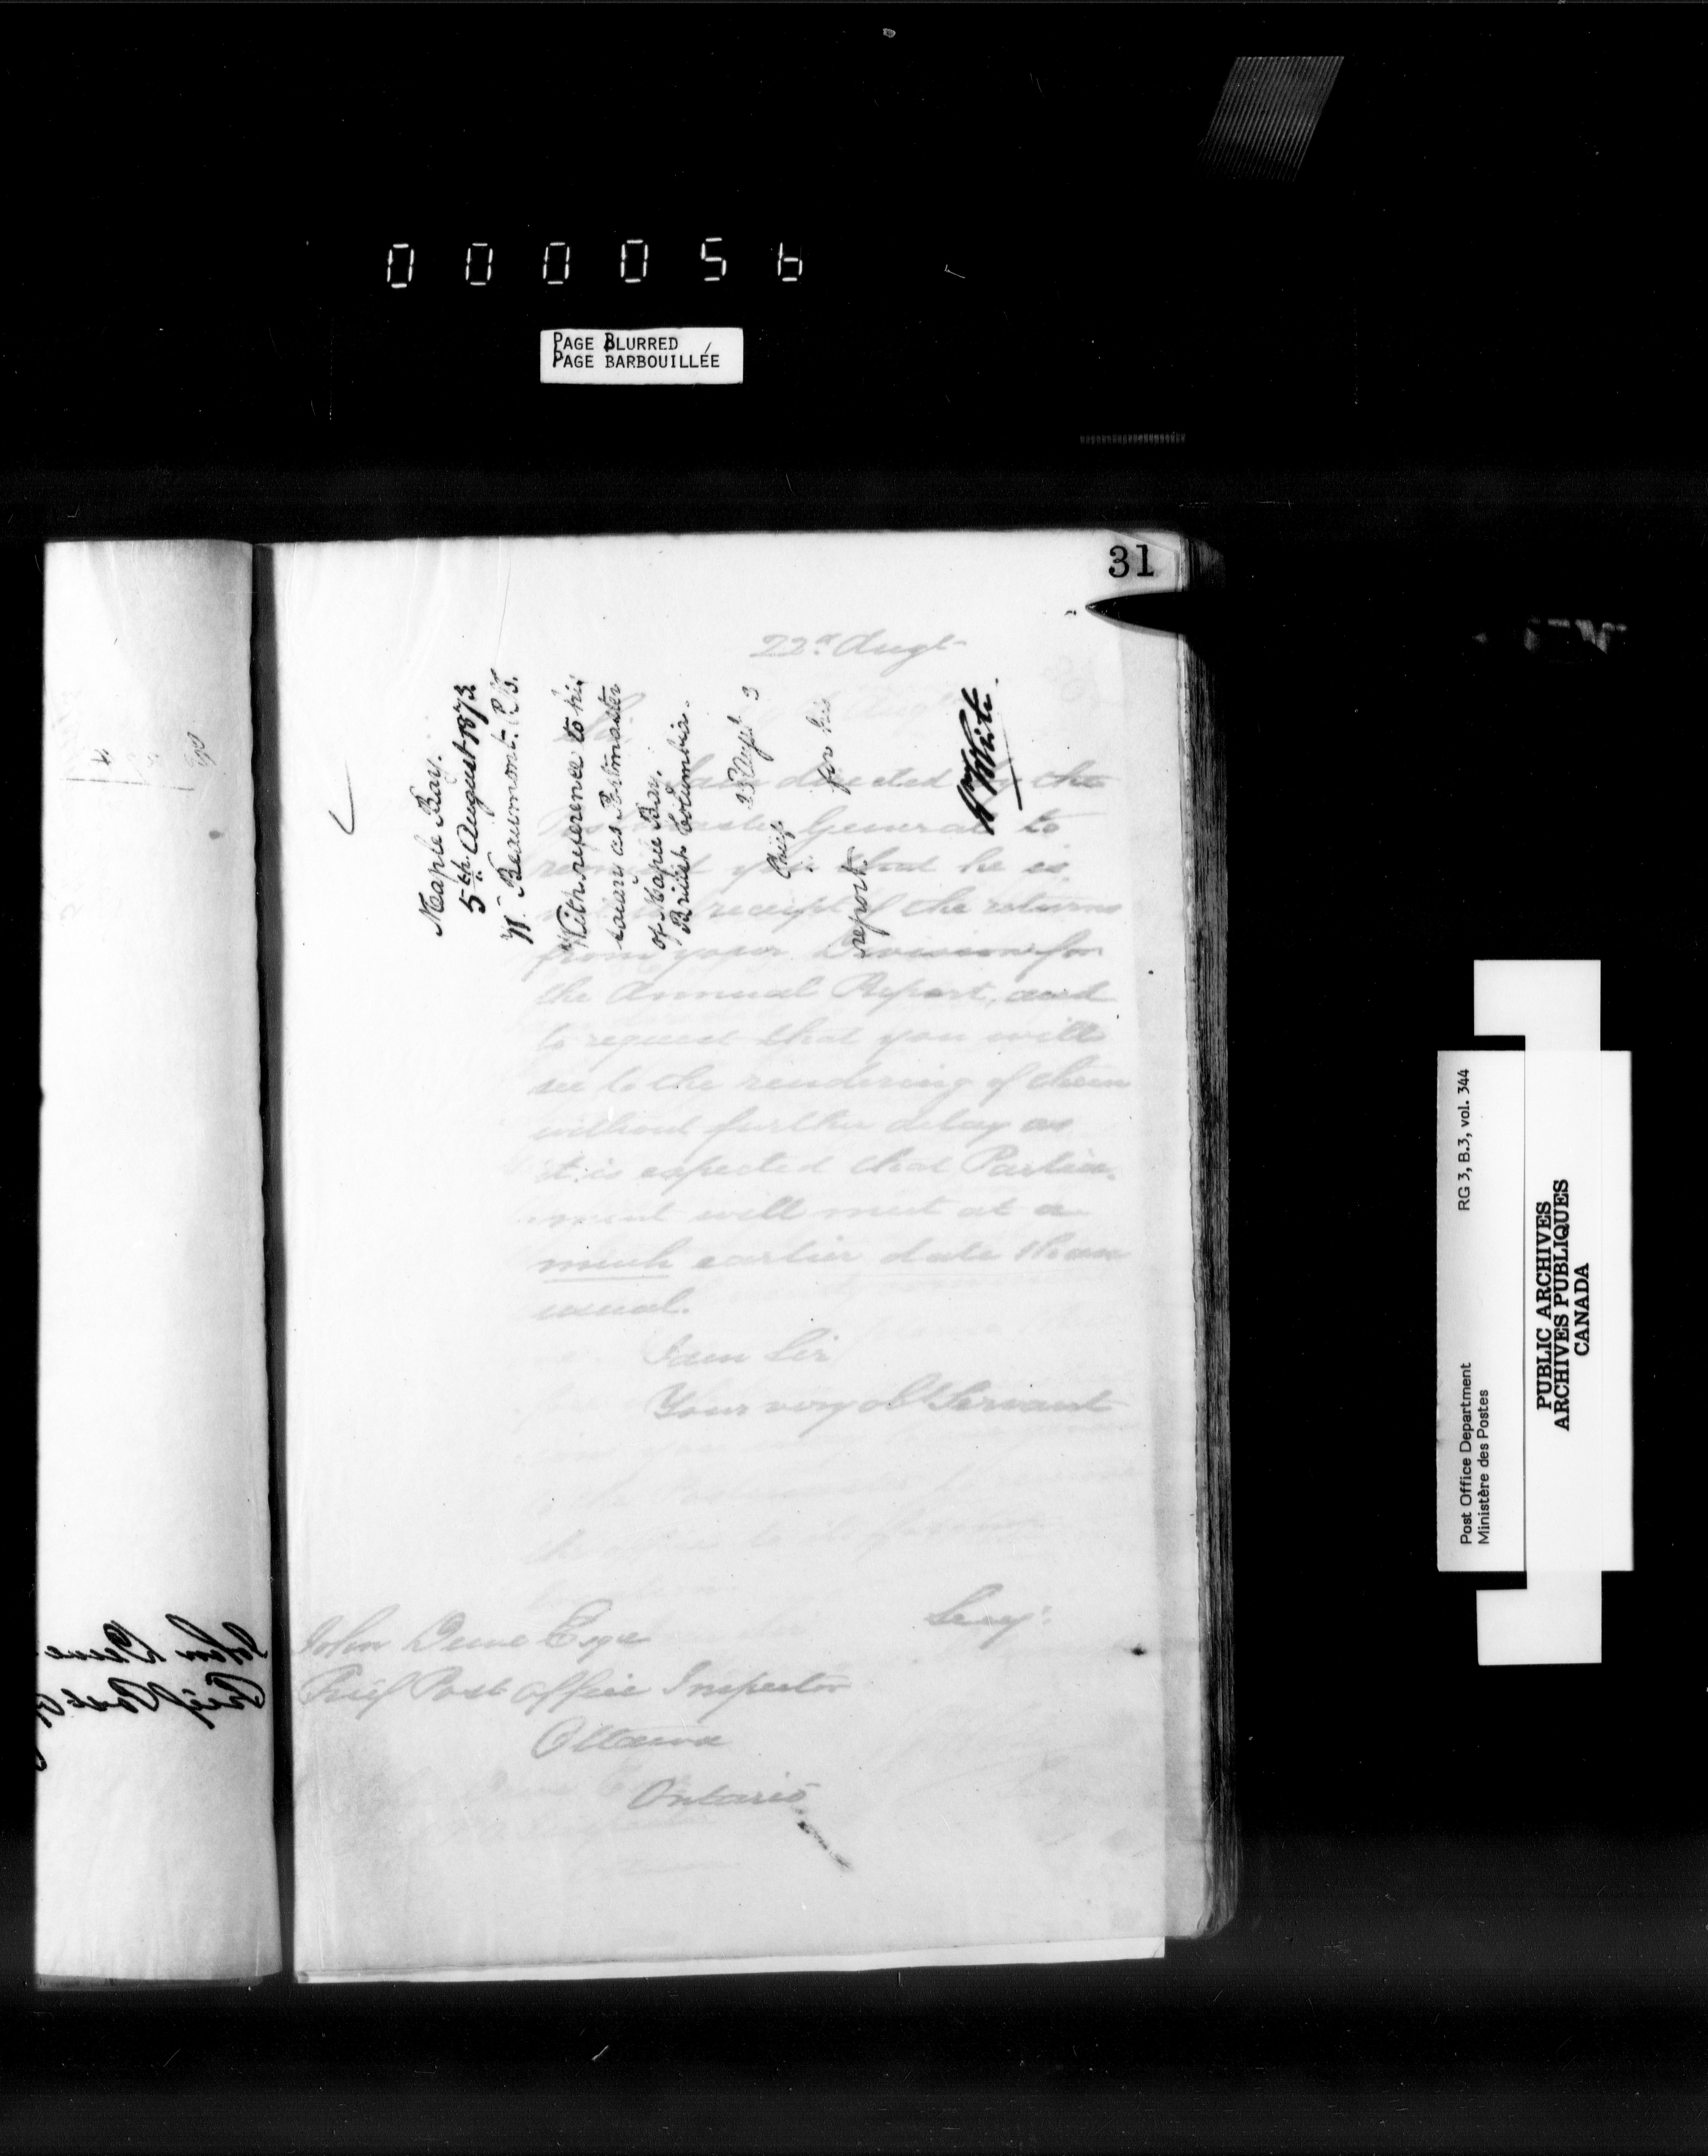 000056
PAGE BLURRED
PAGE BARBOUILLÉE
31
22d Augt
Sir
I am directed by the
Postmaster General to
remind you that he is
not in receipt of the returns
from your Division for
the Annual Report, and
to request that you will
see to the rendering of them
without further delay as
it is expected that Parlia-
ment will meet at a
much earlier date than
usual.
I am Sir
Your very obt Servant
Secy.
John Dewe Esqre
Chief Post Office Inspector
Ottawa
Ontario
Maple Bay.
5th August 1873
W. Beaumont. P.M.
With reference to his
salary as Postmaster
of Maple Bay.
British Columbia.
Chief 23 Augt 3
for his
report.
Wm White
John Dewe
Chief Post
Post Office Department RG 3, B.3, vol. 344
Ministère des Postes
PUBLIC ARCHIVES
ARCHIVES PUBLIQUES
CANADA